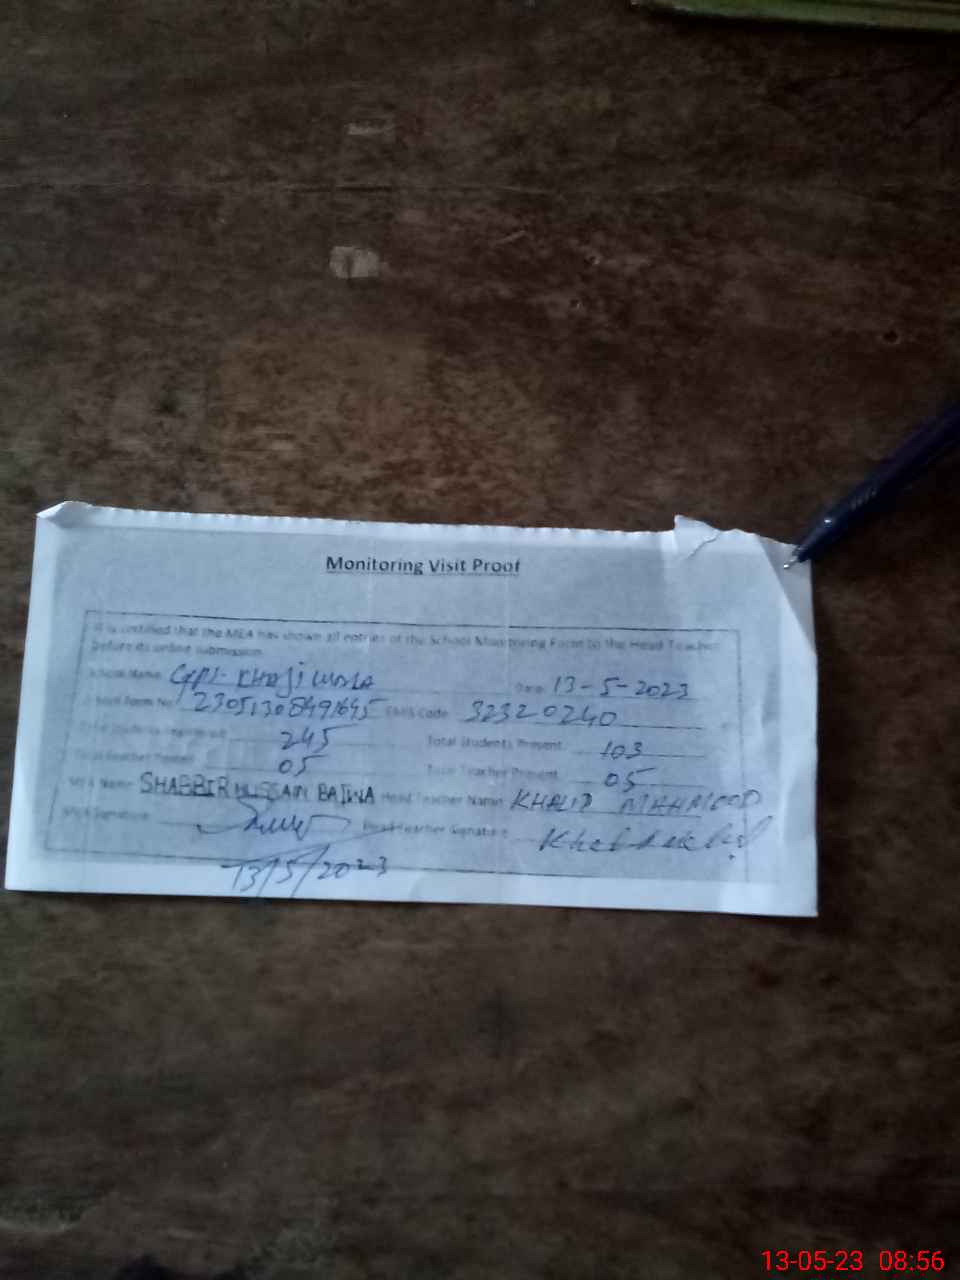 Monitoring Visit Proof
It is certified that the MEA has shown all entries of the School Monitoring Form to the Head Teacher
before its online submission.
School Name GPS- KHOJIWALA Date 13-5-2023
School Form No EMIS Code 32320240
245 Total Students Present 103
05 Total Teacher Present 05
MEA Name SHABBIR HUSSAIN BAJWA Head Teacher Name KHALID MAHMOOD
MEA Signature Head Teacher Signature
13/5/2023
13-05-23 08:56